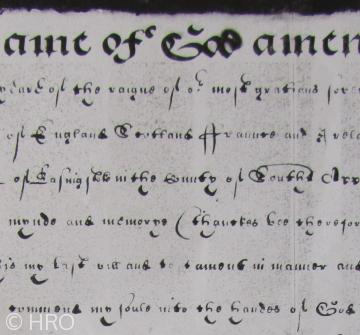 ame of God amen
yeare of the raigne of or most gratious sov
of England Scotland ffraunce and Irela
of in the County of South
mynde and memorye (thanckes bee therefor
is my last will and testament in manner and
commend my soule into the handes of God
© HRO